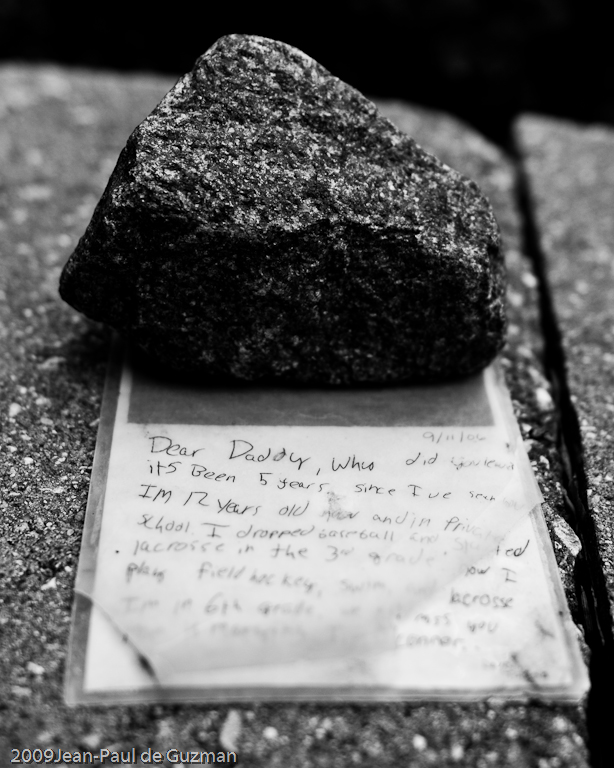 9/11/06
Dear Daddy, Who did you leave
its Been 5 years, since I've seen
Im 12 years old now and im Private
school. I dropped baseball and started
lacrosse in the 3rd grade. now I
play field hockey, swim lacrosse
Im in 6th grade miss you
connor.
2009Jean-Paul de Guzman